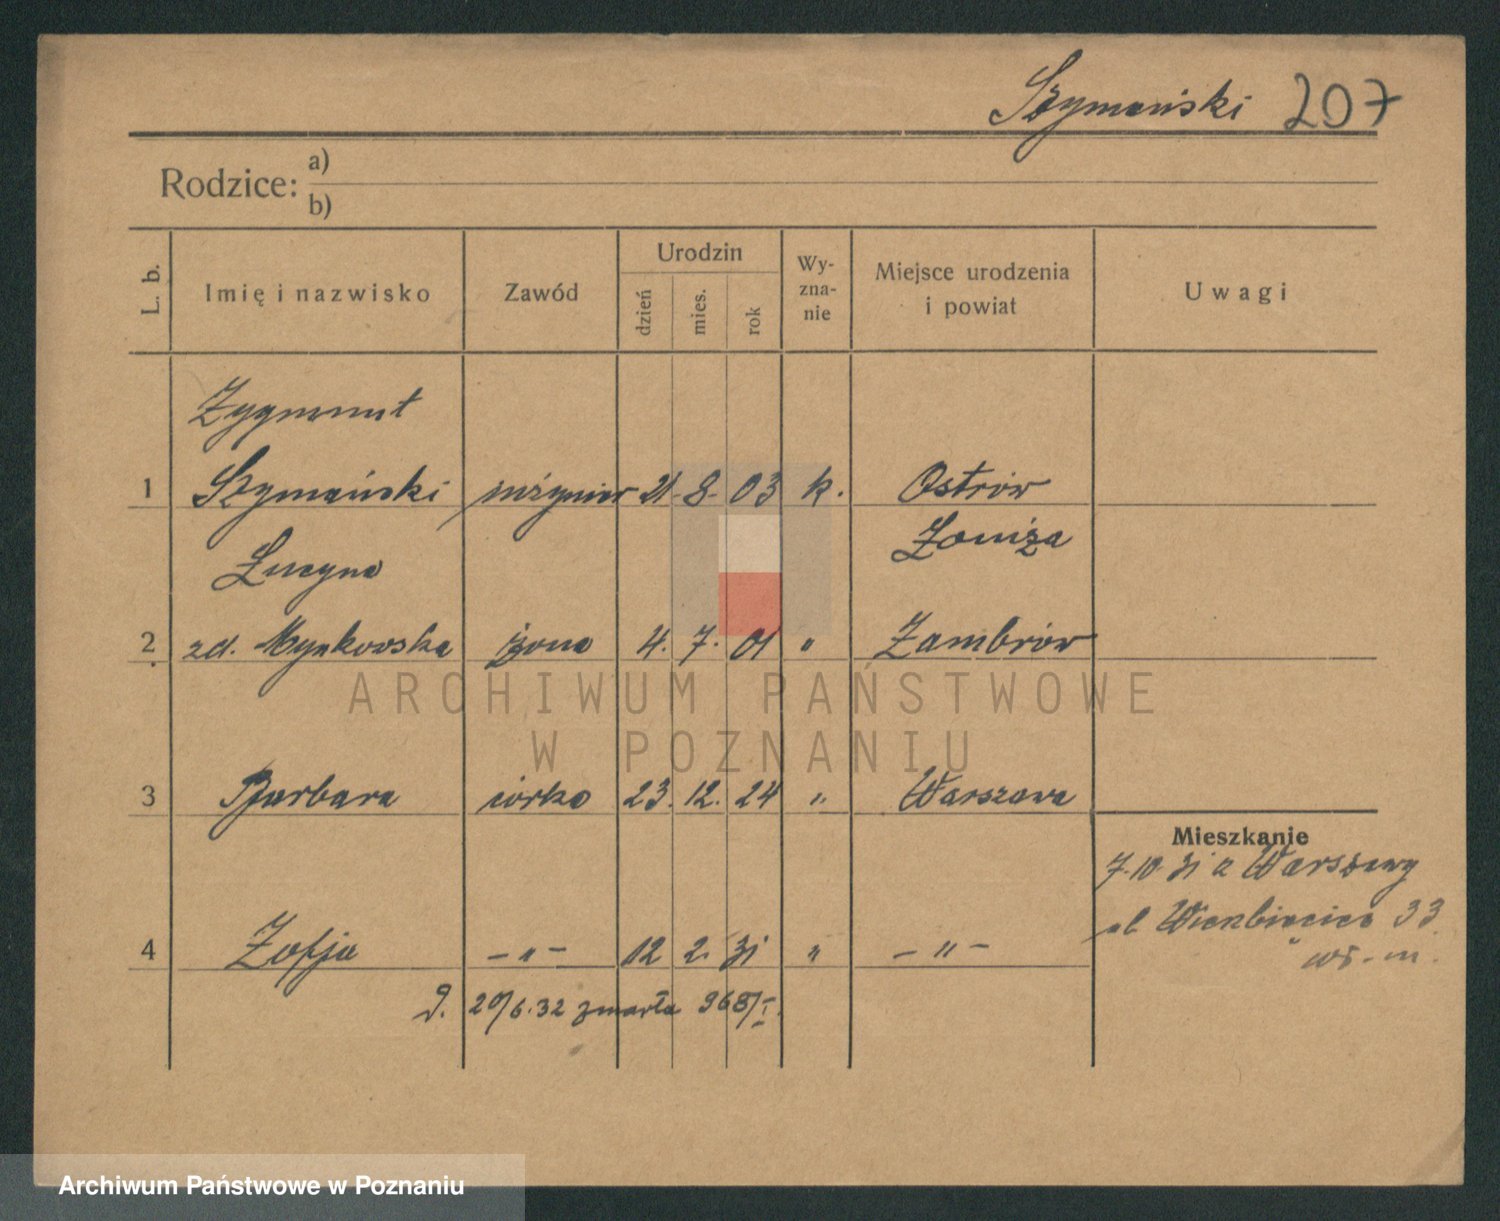 Szymański 207
Rodzice: a)
b)
L. b.
Imię i nazwisko
Zawód
Urodzin
dzień
mies.
rok
Wy-
zna-
nie
Miejsce urodzenia
i powiat
Uwagi
Zygmunt
1 Szymański inżynier 21. 8. 03 k. Ostrów
Łomża
Lucyna
2 zd. żona 4. 7. 01 " Zambrów
3 Barbara córka 23. 12. 24 " Warszawa
Mieszkanie
7.10.31 z Warszawy
4 Zofja — " — 12 2. 31 " — " —
ul 33
20/6.32 zmarła 968/I.
ARCHIWUM PAŃSTWOWE
W POZNANIU
Archiwum Państwowe w Poznaniu